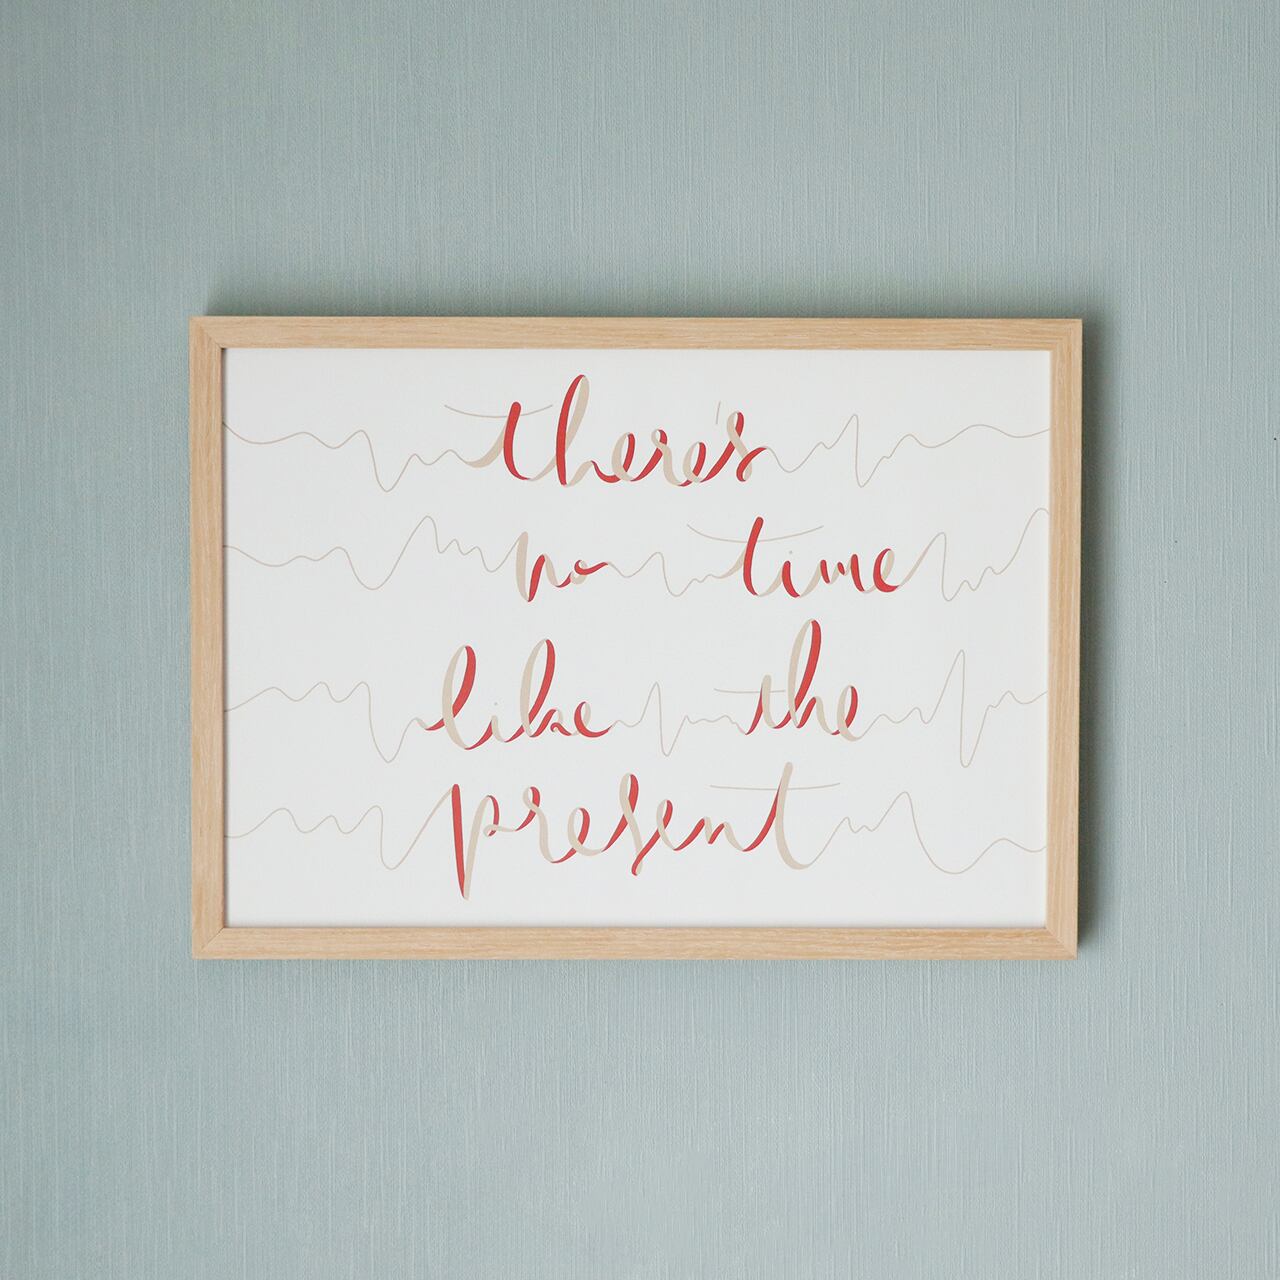 there's
no time
like the
present